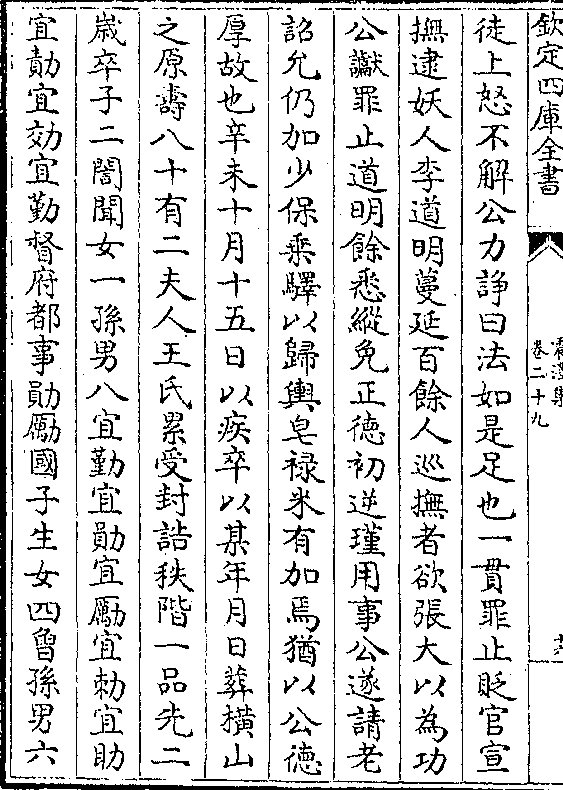 欽定四庫全書
震澤集
卷二十九
徒上怒不解公力諍曰法如是足也一貫罪止貶官宣
撫逮妖人李道明蔓延百餘人巡撫者欲張大以為功
公讞罪止道明餘悉縱免正德初逆瑾用事公遂請老
詔允仍加少保乘驛以歸輿皂祿米有加焉猶以公德
厚故也辛未十月十五日以疾卒以某年月日葬橫山
之原壽八十有二夫人王氏累受封誥秩階一品先二
歲卒子二誾聞女一孫男八宜勤宜勛宜勵宜勑宜助
宜勣宜効宜勤督府都事勛勵國子生女四曾孫男六